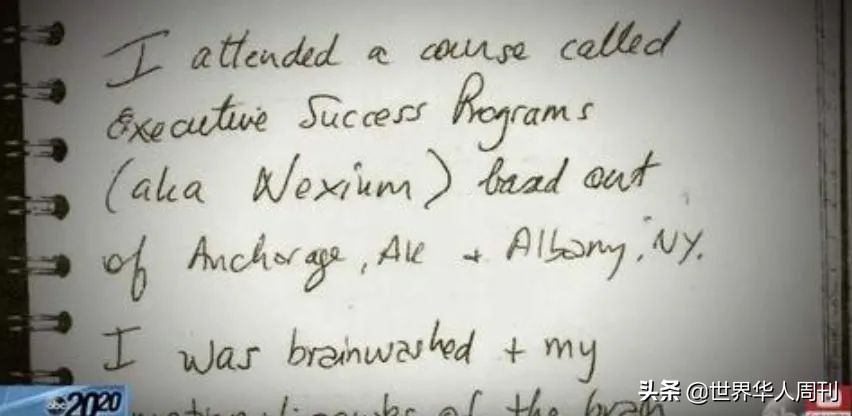 I attended a course called
Executive Success Programs
(aka Nexium) basd out
of Anchorage, AK + Albany, NY.
I was brainwashed + my
of the brain
abc 2020
头条 @世界华人周刊